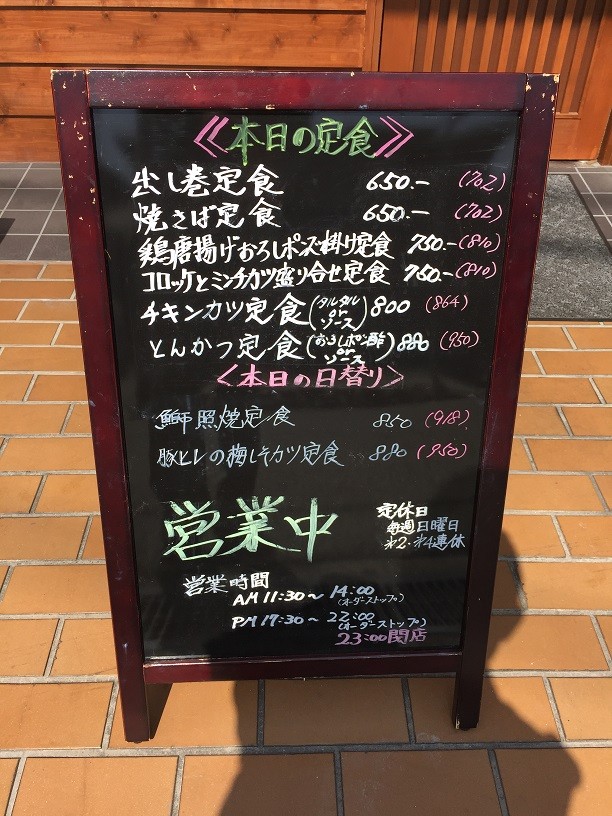 ≪本日の定食≫
出し巻定食 650.- (702)
焼さば定食 650.- (702)
鶏唐揚げおろしポン酢掛け定食 750.- (810)
コロッケとミンチカツ盛り合せ定食 750.- (810)
チキンカツ定食(タルタル or ソース) 800 (864)
とんかつ定食(おろしポン酢 or ソース) 880 (950)
〈本日の日替り〉
鰤照焼定食 850 (918)
豚ヒレの梅しそカツ定食 880 (950)
営業中
定休日
毎週日曜日
第2・第4連休
営業時間
AM 11:30〜14:00
(オーダーストップ)
PM 17:30〜22:00
(オーダーストップ)
23:00閉店